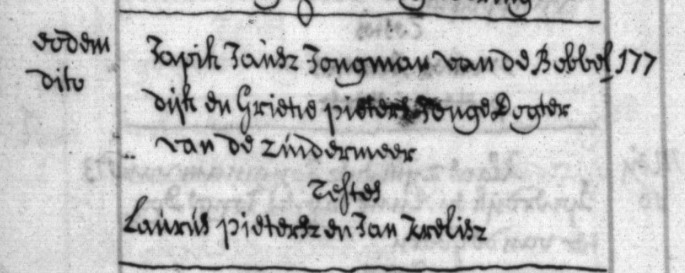 eodem
dito
Japik Jansz Jongman van de Bobbel 177
dijk en Grietie pieters Jonge Dogter
van de zuidermeer
Testes
Lauris pietersz en Jan Krelisz